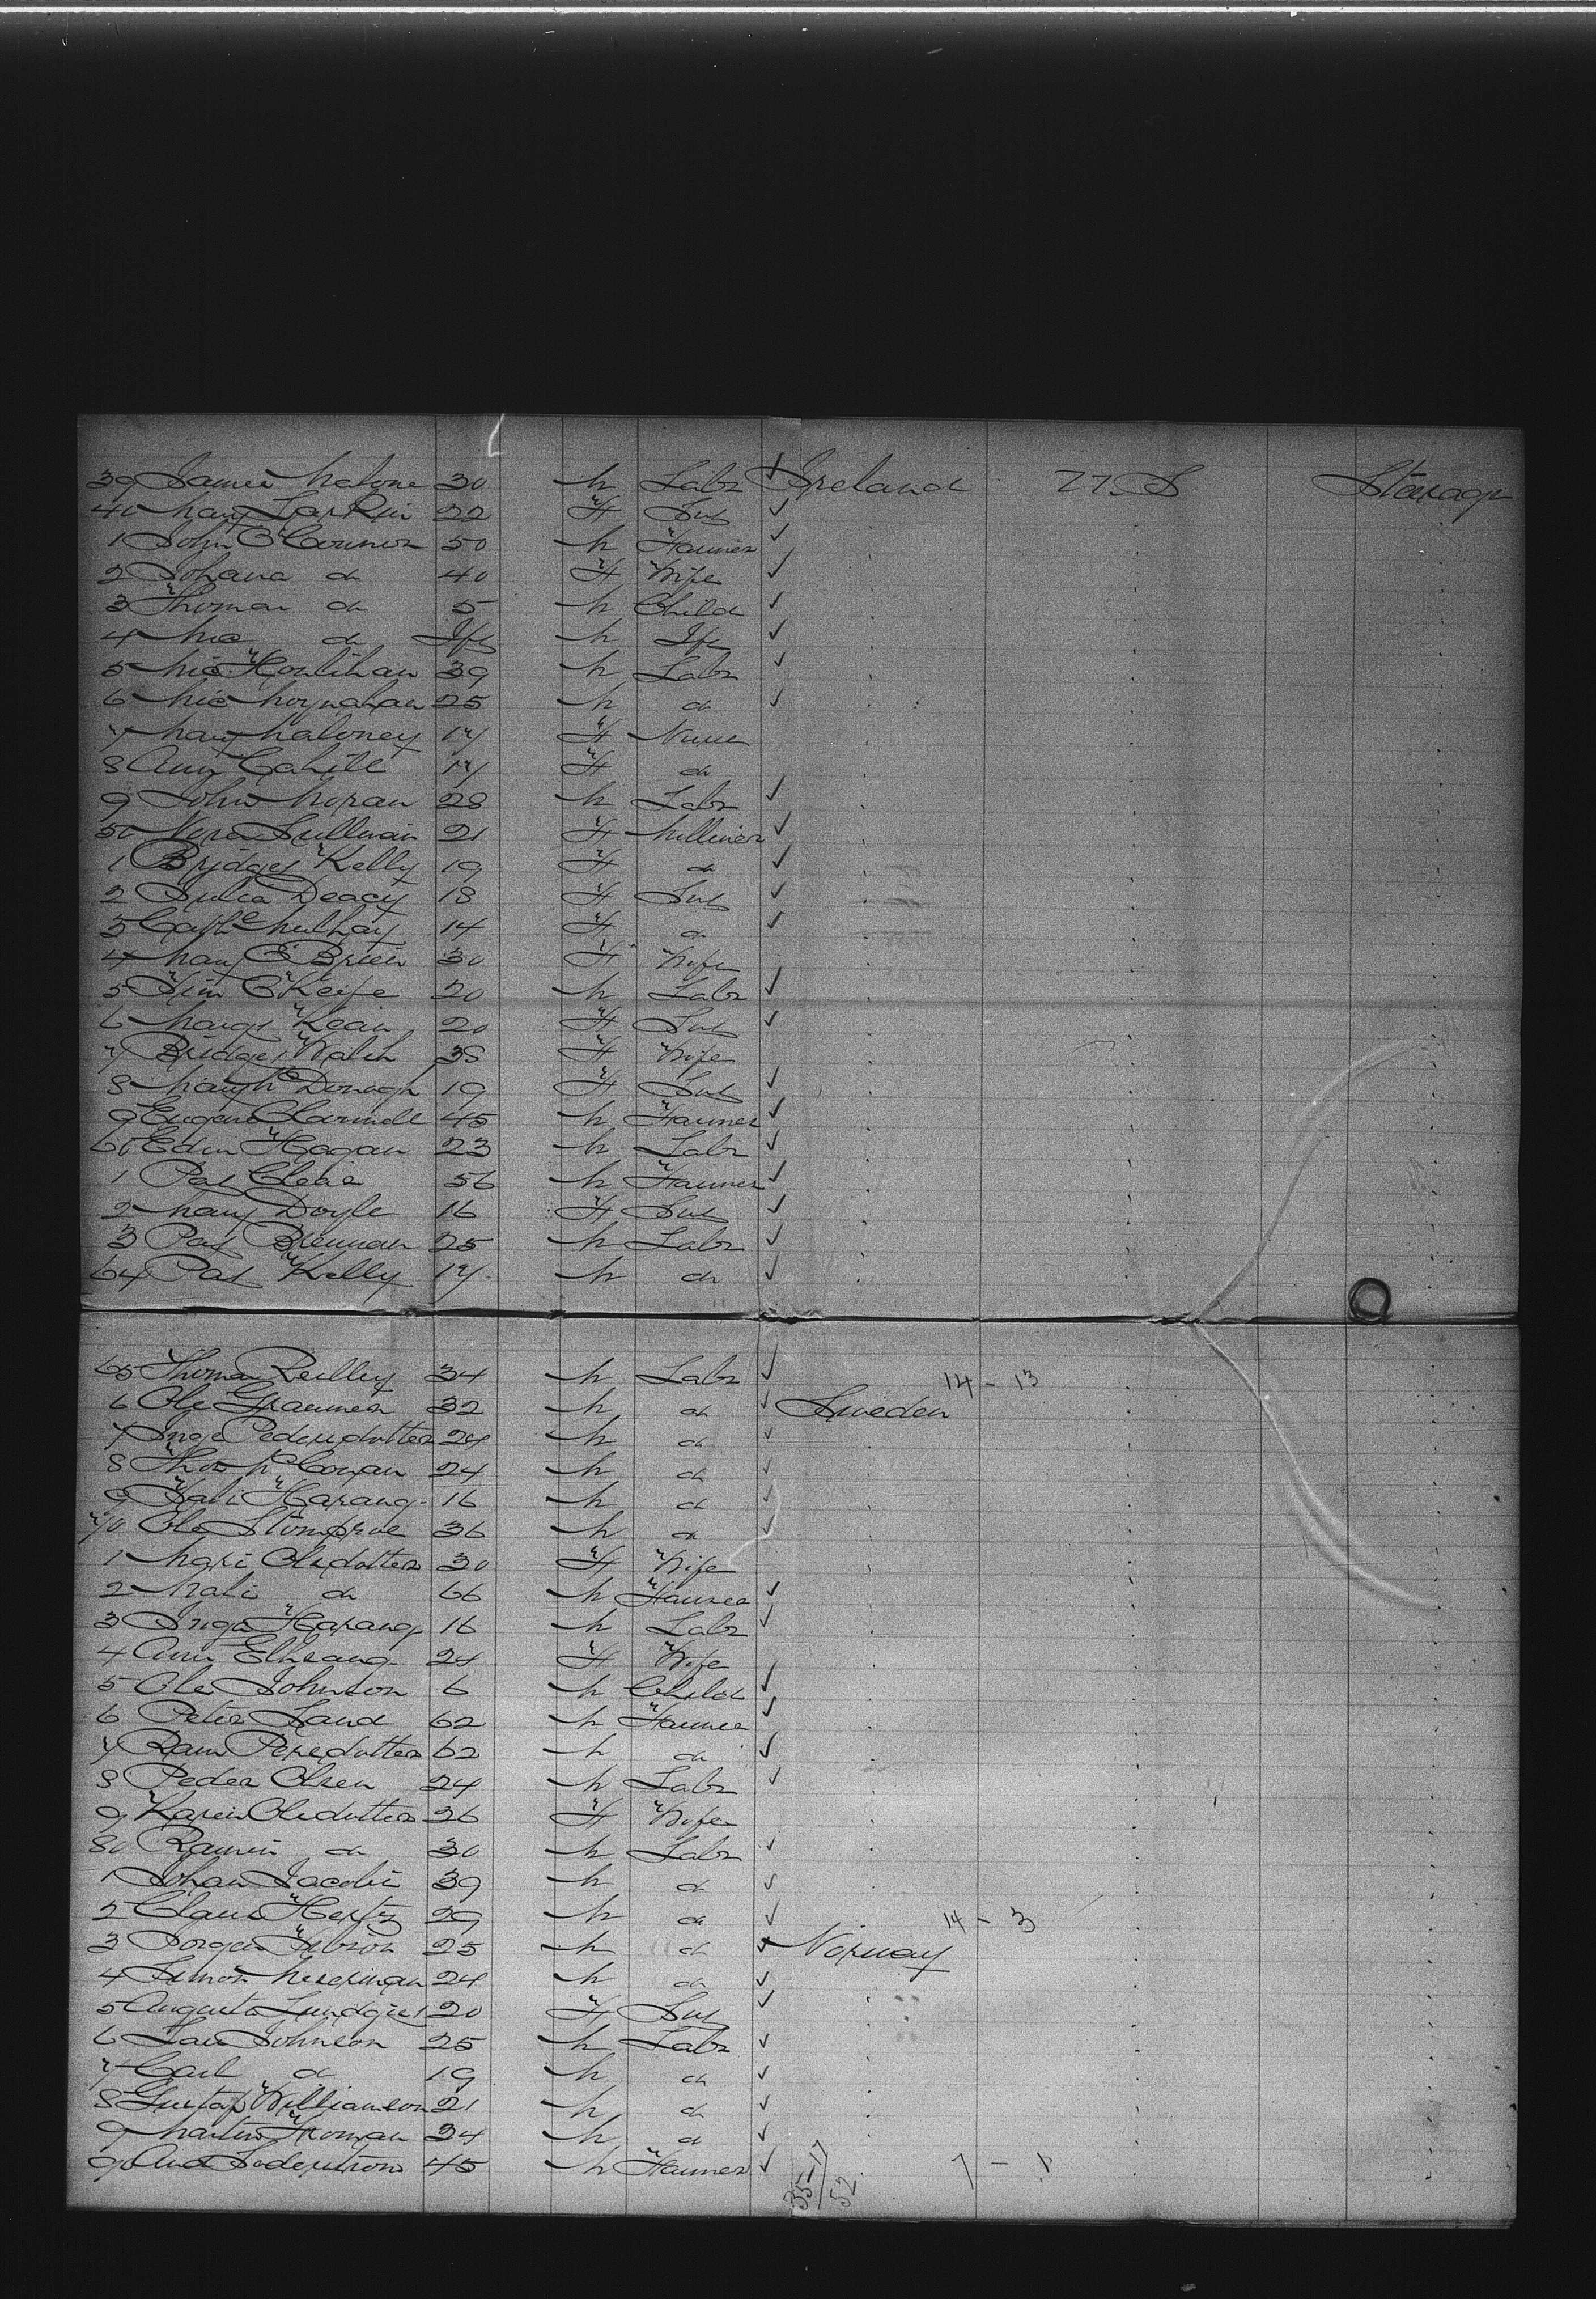 39 James Malone 30 M Labr Ireland U.S. Steerage
40 Mary Larkin 22 F Sus
1 John O'Connor 50 M Farmer
2 Johana do 40 F Wife
3 Thomas do 5 M Child
4 Mic do Ift M Ift
5 Mic Houlihan 39 M Labr
6 Mic Moynahan 25 M do
7 Mary Maloney 17 F Nurse
8 Ann Cahill 17 F do
9 John Moran 28 M Labr
50 Nora Sullivan 21 F Milliner
1 Bridget Kelly 19 F do
2 Julia Deacy 18 F Sus
3 Cathe 14 F do
4 Mary O'Brien 30 F Wife
5 Tim O'Keife 20 M Labr
6 Margt Kean 20 F Sus
7 Bridget Walsh 38 F Wife
8 Mary McDonagh 19 F Sus
9 Eugene 45 M Farmer
60 Edm Hagan 23 M Labr
1 Pat 56 M Farmer
2 Mary Doyle 16 F Sus
3 Pat Brennan 25 M Labr
64 Pat Kelly 17 M do
65 Thomas Reilley 34 M Labr 14 - 13
6 Ole 32 M do Sweden
7 Inge Pedersdotter 24 M do
8 Thos McCowan 24 M do
9 Kali Harang 16 M do
70 Ole 36 M do
1 Mari Olsdotter 30 F Wife
2 Mali do 66 M Farmer
3 Inga Harang 16 M Labr
4 Ann 24 F Wife
5 Ole Johnson 6 M Child
6 Peter Land 62 M Farmer
7 Peresdotter 62 M do
8 Peder Olsen 24 M Labr
9 Karen Olsdotter 26 F Wife
80 do 30 M Labr
1 Johan Jacobi 39 M do
2 Claus Hertz 29 M do 14 - 3
3 Jorgen 25 M do Norway
4 Simon 24 M do
5 Augusta Lundgist 20 F Sus
6 Johnson 25 M Labr
7 Carl do 19 M do
8 Gustaf Williamson 21 M do
9 Martin Froman 24 M do
90 And Soderstrom 45 M Farmer 7 - 1
35-17
52